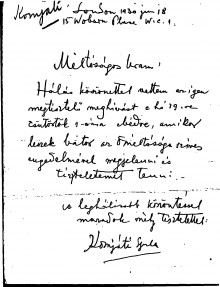 Komjáti London 1930 jun 18
15 Woburn Place W.C.1.
Méltóságos Uram!
Hálás köszönettel vettem az igen
megtisztelő meghivást e hó 19-re
csütörtök 1 órára ebédre, amikor
leszek bátor az őméltósága szives
engedelmével megjelenni és
tiszteletemet tenni.
leghálásabb köszönettel
maradok mély tisztelettel:
Komjáti Gyula